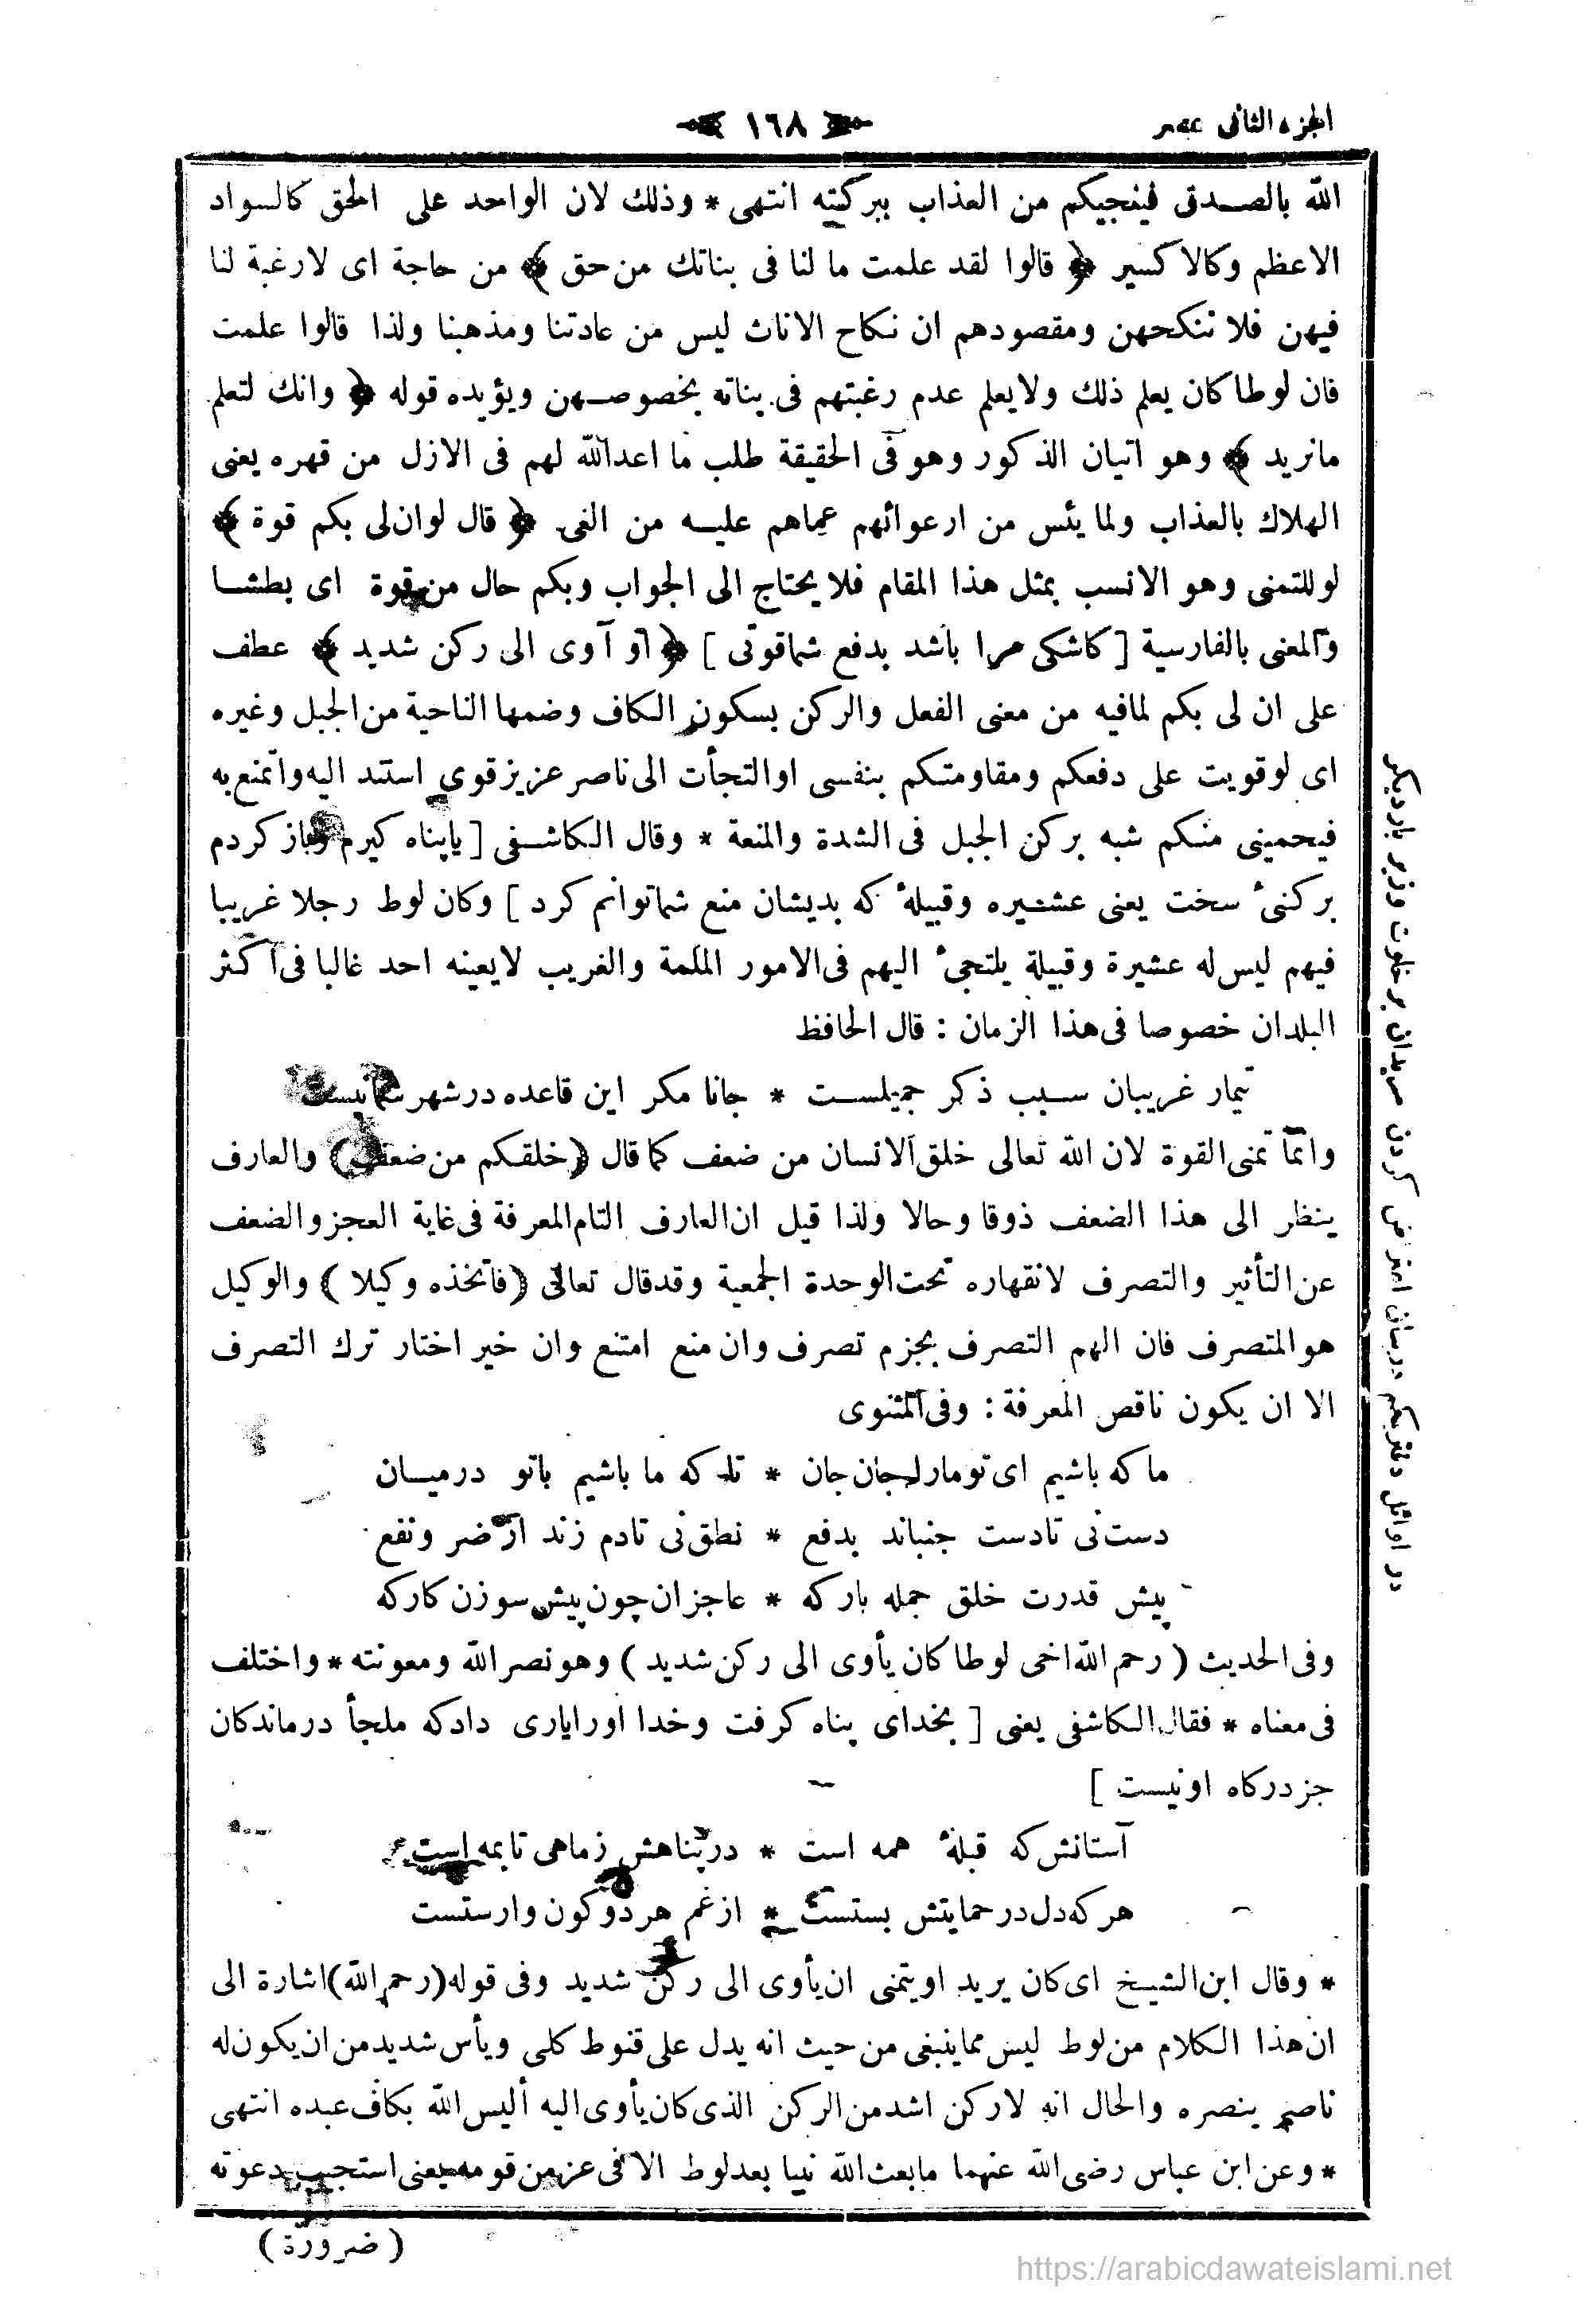 الجزء الثانى عشر
١٦٨
الله بالصدق فينجيكم من العذاب ببركته انتهى * وذلك لان الواحد على الحق كالسواد
الاعظم وكالاكسير ﴿ قالوا لقد علمت ما لنا فى بناتك من حق ﴾ من حاجة اى لارغبة لنا
فيهن فلا ننكحهن ومقصودهم ان نكاح الاناث ليس من عادتنا ومذهبنا ولذا قالوا علمت
فان لوطا كان يعلم ذلك ولايعلم عدم رغبتهم فى بناته بخصوصهن ويؤيده قوله ﴿ وانك لتعلم
مانريد ﴾ وهو اتيان الذكور وهو فى الحقيقة طلب ما اعدالله لهم فى الازل من قهره يعنى
الهلاك بالعذاب ولما يئس من ارعوائهم عماهم عليه من الغى ﴿ قال لوان لى بكم قوة ﴾
لوللتمنى وهو الانسب بمثل هذا المقام فلا يحتاج الى الجواب وبكم حال من قوة اى بطشا
والمعنى بالفارسية [ كاشكى مرا باشد بدفع شماقوتى ] ﴿ او آوى الى ركن شديد ﴾ عطف
على ان لى بكم لمافيه من معنى الفعل والركن بسكون الكاف وضمها الناحية من الجبل وغيره
اى لوقويت على دفعكم ومقاومتكم بنفسى اوالتجأت الى ناصر عزيز قوى استند اليه واتمنع به
فيحمينى منكم شبه بركن الجبل فى الشدة والمنعة * وقال الكاشفى [ ياپناه كيرم وباز كردم
بركنىء سخت يعنى عشيره وقبيلهٔ كه بديشان منع شماتوانم كرد ] وكان لوط رجلا غريبا
فيهم ليس له عشيرة وقبيلة يلتجىء اليهم فى الامور الملمة والغريب لايعينه احد غالبا فى اكثر
البلدان خصوصا فى هذا الزمان : قال الحافظ
تيمار غريبان سبب ذكر جميلست * جانا مكر اين قاعده در شهر شمانيست
وانما تمنى القوة لان الله تعالى خلق الانسان من ضعف كما قال ﴿ خلقكم من ضعف ﴾ والعارف
ينظر الى هذا الضعف ذوقا وحالا ولذا قيل ان العارف التام المعرفة فى غاية العجز والضعف
عن التأثير والتصرف لانقهاره تحت الوحدة الجمعية وقدقال تعالى ﴿ فاتخذه وكيلا ﴾ والوكيل
هو المتصرف فان الهم التصرف بجزم تصرف وان منع امتنع وان خير اختار ترك التصرف
الا ان يكون ناقص المعرفة : وفى المثنوى
ما كه باشيم اى تومارا جان جان * تا كه ما باشيم باتو درميان
دست نى تادست جنباند بدفع * نطق نى تادم زند از ضر ونفع
پيش قدرت خلق جمله باركه * عاجزان چون پيش سوزن كاركه
وفى الحديث ( رحم الله اخى لوطا كان يأوى الى ركن شديد ) وهو نصر الله ومعونته * واختلف
فى معناه * فقال الكاشفى يعنى [ بخداى پناه كرفت وخدا اورايارى داد كه ملجأ درماندكان
جز دركاه اونيست ]
آستانش كه قبلهٔ همه است * در پناهش زماهى تابمه است
هر كه دل در حمايتش بستست * از غم هر دو كون وارستست
* وقال ابن الشيخ اى كان يريد اويتمنى ان يأوى الى ركن شديد وفى قوله (رحم الله) اشارة الى
ان هذا الكلام من لوط ليس مماينبغى من حيث انه يدل على قنوط كلى ويأس شديد من ان يكون له
ناصر ينصره والحال انه لاركن اشد من الركن الذى كان يأوى اليه أليس الله بكاف عبده انتهى
* وعن ابن عباس رضى الله عنهما مابعث الله نبيا بعد لوط الا فى عز من قومه يعنى استجيب دعوته
( ضرورة )
در اوائل دفتر يكم در بيان اعتراض كردن مريدان بر خلوت وزير بار ديكر
https://arabicdawateislami.net